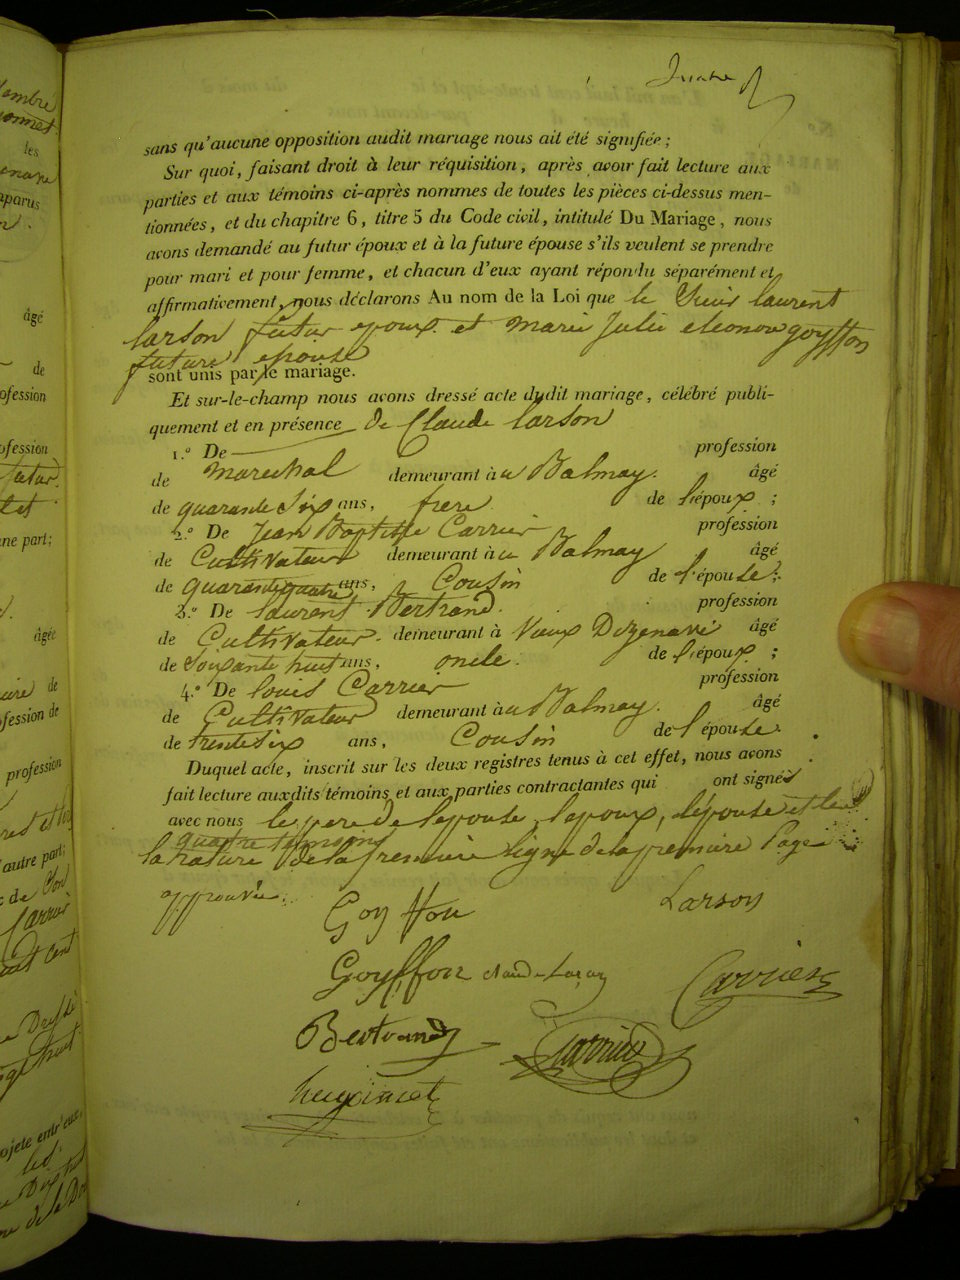 sans qu'aucune opposition audit mariage nous ait été signifiée ;
Sur quoi, faisant droit à leur réquisition, après avoir fait lecture aux
parties et aux témoins ci-après nommes de toutes les pièces ci-dessus men-
tionnées, et du chapitre 6, titre 5 du Code civil, intitulé Du Mariage, nous
avons demandé au futur époux et à la future épouse s'ils veulent se prendre
pour mari et pour femme, et chacun d'eux ayant répondu séparément et
affirmativement, nous déclarons Au nom de la Loi que le Sieur laurent
larson futur epoux et marie Julie eleonore goyffon
future epouse
sont unis par le mariage.
Et sur-le-champ nous avons dressé acte dudit mariage, célébré publi-
quement et en présence de Claude larson
1.° De profession
de marechal demeurant à u Balmay. âgé
de quarante Six ans, frere de l'époux ;
2.° De Jean Baptiste Carrier profession
de Cultivateur demeurant à u Balmay âgé
de quarante quatre ans, Cousin de l'épouse ;
3.° De laurent Bertrand. profession
de Cultivateur. demeurant à Vieux âgé
de Soixante huit ans, oncle. de l'époux ;
4.° De louis Carrier profession
de Cultivateur demeurant à u Balmay. âgé
de trente six ans, Cousin de l'épouse.
Duquel acte, inscrit sur les deux registres tenus à cet effet, nous avons
fait lecture auxdits témoins et aux parties contractantes qui ont signés
avec nous le pere de l'epouse, l'epoux, l'epouse et les
quatre temoins
la rature de la premiere ligne de la premiere Page
approuvée.
Goyffon Larson
Goyffon claude Larson Carrier
Bertrand Carrier